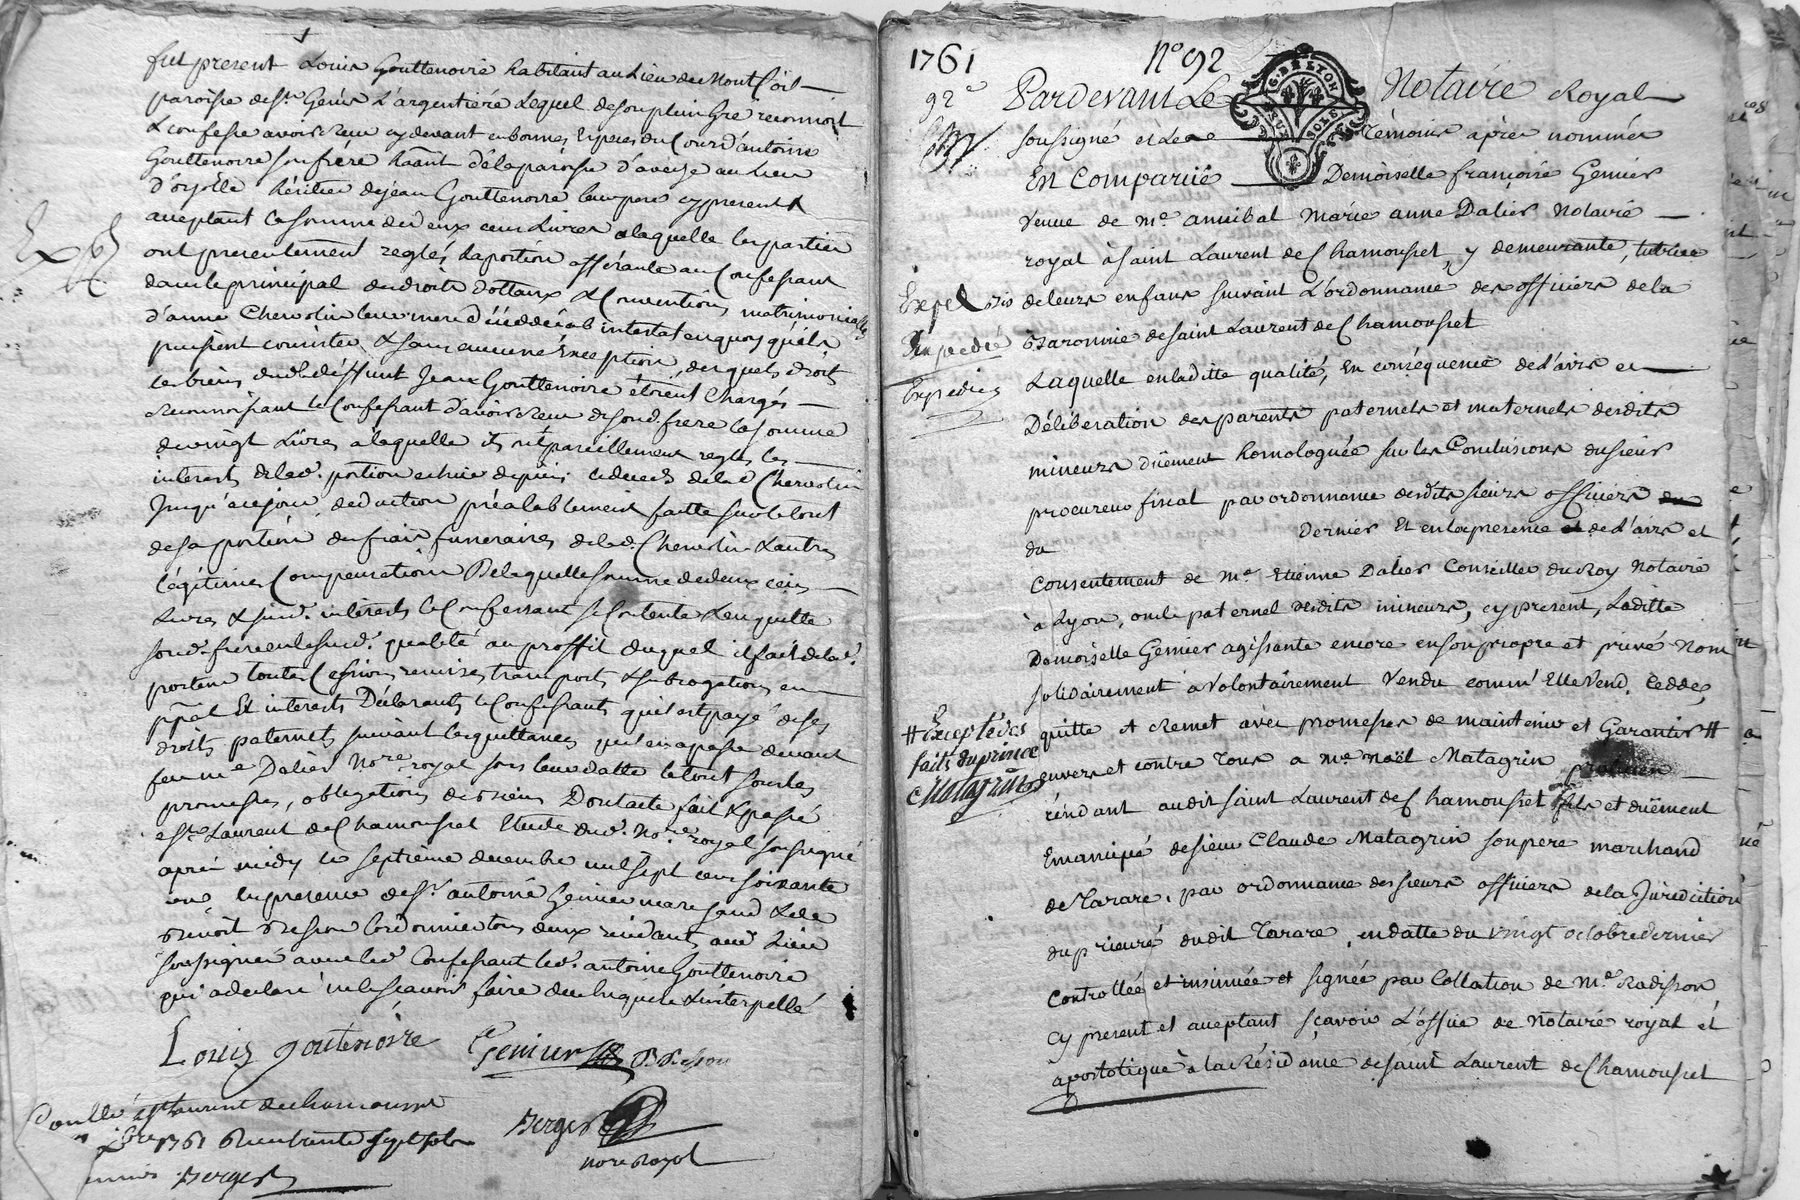 fut present Louis Gouttenoire habitant au Lieu de Montclois
paroisse de St. Genis L'argentiere Lequel de son plein Gré reconnoit
& confesse avoir receu cy devant en bonnes Especes du Cours d'antoine
Gouttenoire son frère hāant de la paroisse d'aveize au Lieu
heritier de jean Gouttenoire leur pere cy present &
aceptant la somme de deux cens Livres a laquelle les parties
ont presentement reglés la portion afferante au Confessant
dans le principal des droits dottaux & Conventions matrimoniales
d'anne Chervolin leur mere décédée ab intestat en quoy qu'ils
puissent consister & sans aucune Exception, desquels droits
les biens dud. deffunt Jean Gouttenoire étoient Chargés
reconnoissant le Confessant d'avoir receu de sond. frere la somme
de vingt Livres a laquelle ils ont pareillement reglés les
interests de lad. portion echue depuis le deceds de lad. Chervolin
Jusqu'a ce jour, deduction préalablement faitte sur le tout
de sa portion des frais funeraires de lad. Chervolin & autres
Légitimes Compensations De laquelle somme de deux cens
Livres & susd. interests le Confessant se Contente & en quitte
sond. frere en lesusd. qualité au proffit duquel il fait de lad.
portion toutes Cessions remises transports & subrogations en
ppal Et interests Déclarant le Confessant qu'il est payé de ses
droits paternels suivant les quittances qu'il en a passé devant
feu me Dalier Nore. royal sous leur datte le tout sous les
promesses, obligations de biens Dont acte fait & passé
a St. Laurent de Chamousset Etude dud. Nore. royal soussigné
aprés midy le septième decembre mil sept cens soixante
une en presence de Sr. antoine Genier marchand & de
Benoit Besson Cordonnier tous deux residants aud. Lieu
soussignés avec led. Confessant led. antoine Gouttenoire
qui a declaré ne le scavoir faire de ce enquis & interpellé
Louis goutenoire Genier B. Besson
Conllé a St Laurent de chamousset
Xbre 1761 Berger
nore Royal
Berger
1761
No 92
92e
G. DE LYON
Pardevant Le Notaire Royal
soussigné et Les Témoins aprés nommés
En Comparüe Demoiselle françoise Genier
veuve de Me. annibal Marie anne Dalier Notaire
royal à saint Laurent de Chamousset, y demeurante, tutrice
de leurs enfans suivant L'ordonnance des officiers de la
Baronnie de saint Laurent de Chamousset
Expédié
Expediez
Laquelle en laditte qualité, En conséquence de L'avis et
Déliberation des parents paternels et maternels desdits
mineurs düement homologuée sur les Conclusions du sieur
procureur fiscal par ordonnance desdits sieurs officiers
du dernier Et en la presence de L'avis et
Consentement de Me. Etienne Dalier Conseiller du Roy Notaire
à Lyon, oncle paternel desdits mineurs, cy present, Laditte
Demoiselle Genier agissante encore en son propre et privé Nom
solidairement a volontairement Vendu comm' Elle Vend, Cedde,
quitte et remet avec promesses de maintenir et Garantir #
# Excepté les
faits du prince
Matagrin
envers et contre Tous a Me Noël Matagrin praticien
résidant audit saint Laurent de Chamousset fils et düement
Emancipé de sieur Claude Matagrin son pere marchand
de Tarare, par ordonnance des sieurs officiers de la Juridiction
du prieuré dudit Tarare, en datte du vingt octobre dernier
Controllée et insinuée et signée par Collation de Me. Radisson,
cy present et aceptant sçavoir L'office de Notaire royal et
apostolique à la Résidance de saint Laurent de Chamousset